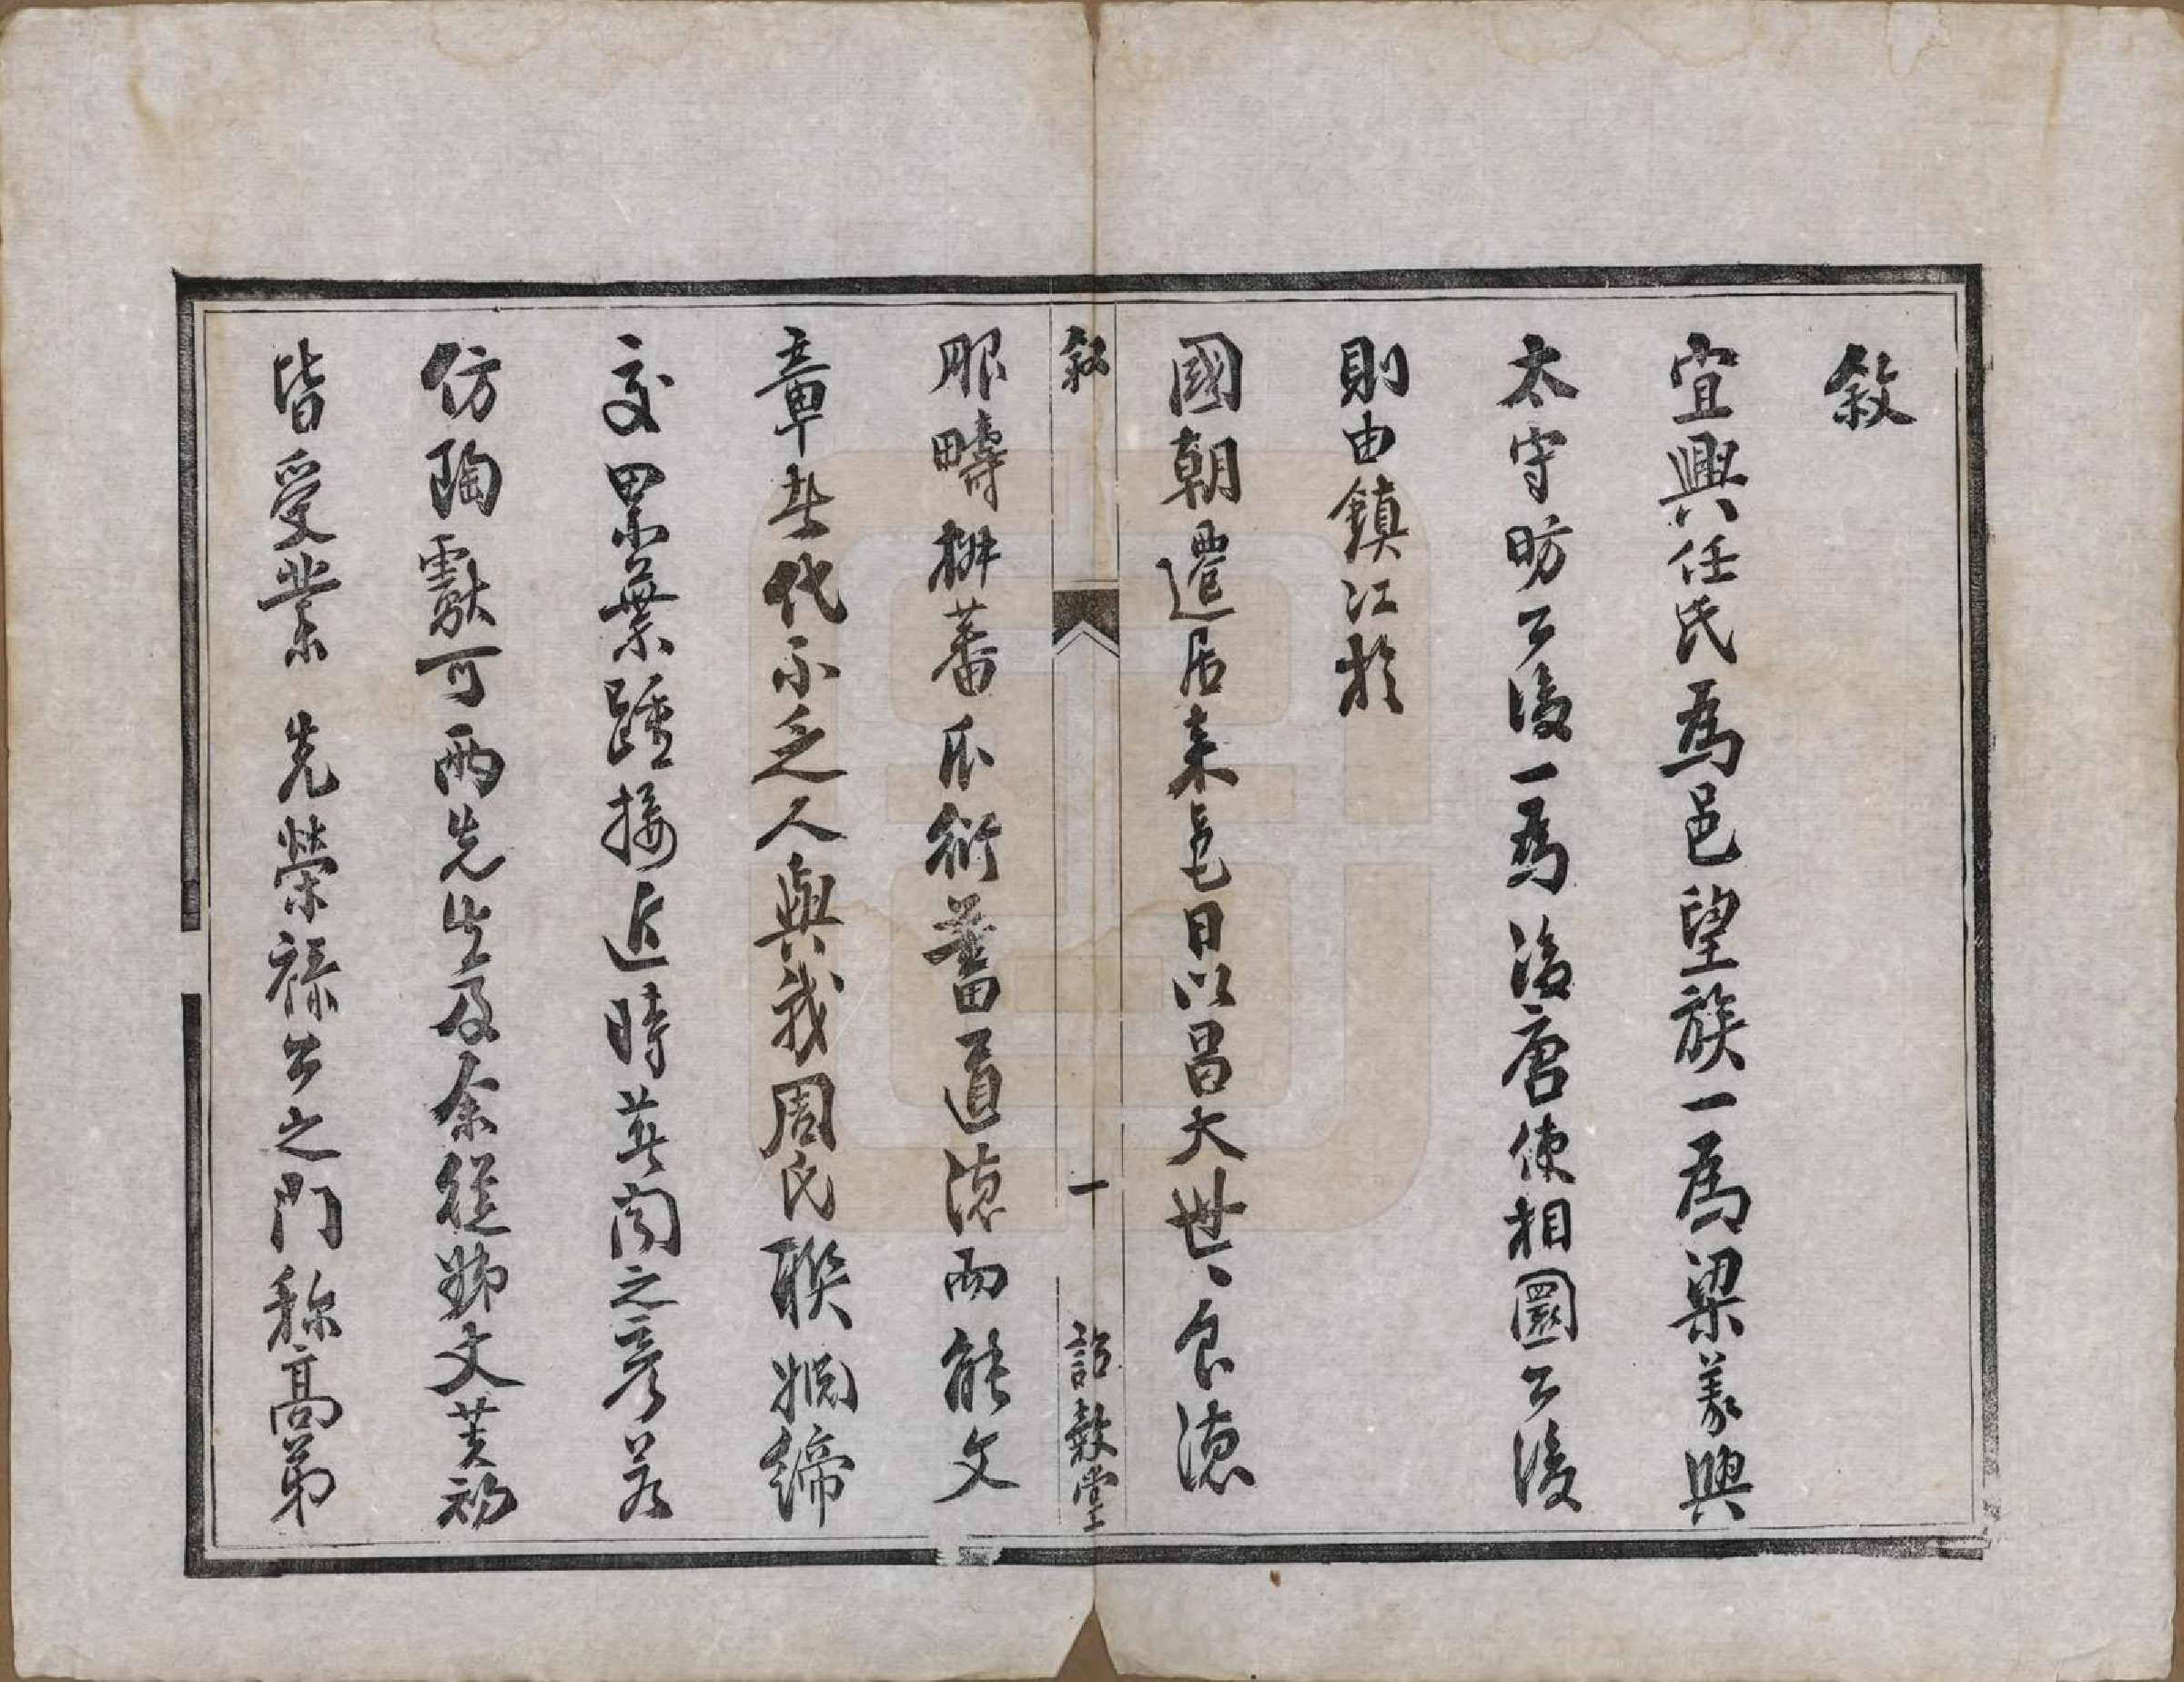 敘
宜興任氏為邑望族一為梁義興
太守昉公後一為後唐使相圜公後
則由鎮江於
國朝遷居来邑日以昌大世〻食德
服疇椒蕃瓜衍蓄道德而能文
章者代不乏人與我周氏聯姻締
交累葉踵接近時英闇之彥若
仿陶獻可兩先生及余從姊丈芙初
皆受業 先榮祿公之門稱高第
敘
一
詒穀堂